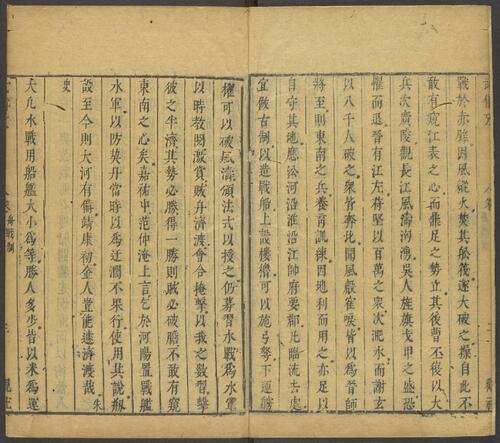 戰於赤壁因風縱火焚其船筏遂大破之操自此不
敢有窺江表之心而鼎足之勢立其後曹丕後以大
兵次廣陵觀長江風濤洶湧吳人旌旗戈甲之盛恐
懼而退晉有江左苻堅以百萬之衆次淝水而謝玄
以八千人破之衆皆奔北聞風聲雀唳皆以爲晉師
將至則東南之兵養育訓練因地利而用之亦足以
自守其地應沿河沿淮沿江帥府要郡
宜倣古制以造戰船上設樓櫓可以施弓弩下運艣
櫂可以破風濤頒法式以授之仍募習水戰爲水軍
以時教閱激賞賊舟濟渡會合掩擊以我之數習擊
彼之半濟其勢必勝得一勝則賊必破膽不敢有窺
東南之心矣嘉祐中范仲淹上言乞於河陽置戰艦
水軍以防契丹當時以爲迂濶不果行使用其說
設至今則大河有備靖康初金人豈能遽濟渡哉 朱
史
大凡水戰用船艦大小爲等勝人多少皆以米爲